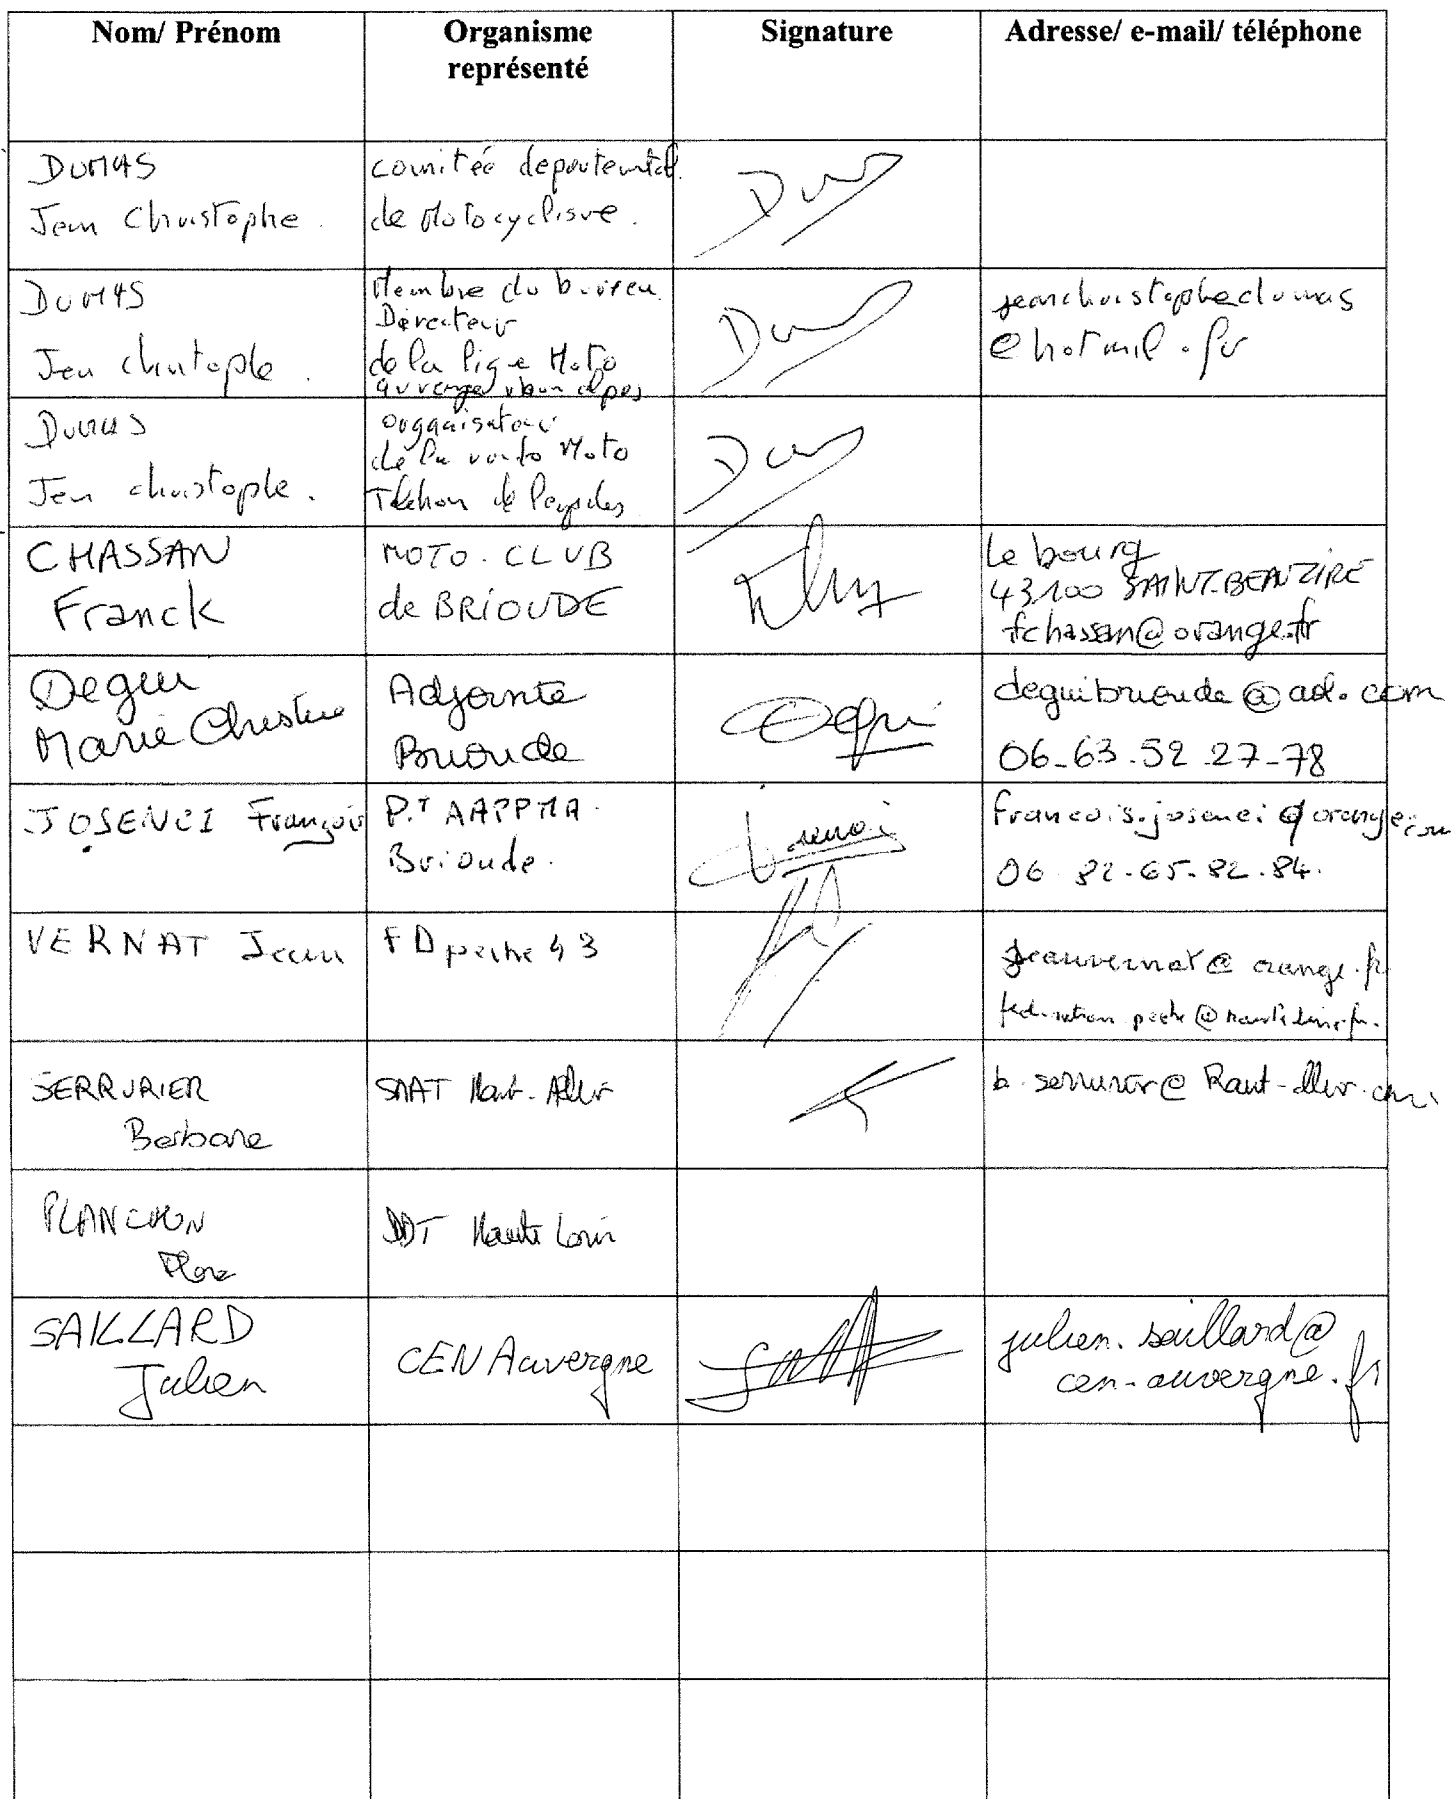 Nom/ Prénom
Organisme
représenté
Signature
Adresse/ e-mail/ téléphone
DUMAS
Jean Christophe.
comitée departemental
de Motocyclisme.
DUMAS
Jean christophe.
Membre du bureau
Directeur
de la ligue Moto
auvergne rhone alpes
jeanchristophedumas
@hotmail.fr
DUMAS
Jean christophe.
organisateur
de la Moto
Téléthon de
CHASSAN
Franck
MOTO.CLUB
de BRIOUDE
Le bourg
43100 SAINT-BEAUZIRE
fchassan@orange.fr
Degui
Marie Christine
Adjointe
Brioude
deguibrioude@aol.com
06-63-52-27-78
JOSENCI François
P.T AAPPMA.
Brioude.
francois.josenci@orange.com
06.82.65.82.84.
VERNAT Jean
FD peche 43
jeanvernat@orange.fr
SERRURIER
Barbara
SMAT Haut-Allier
b.serrurier@haut-allier.com
PLANCHON
DDT Haute Loire
SAILLARD
Julien
CEN Auvergne
julien.saillard@
cen-auvergne.fr